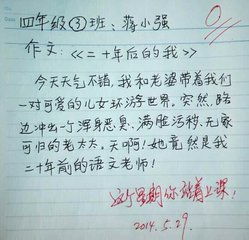 四年级③班：蒋小强
作文：<<二十年后的我>>
今天天气不错，我和老婆带着我们
一对可爱的儿女环游世界。突然，路
边冲出一个浑身恶臭、满脏污秽、无家
可归的老太太。天啊！她竟然是我
二十年前的语文老师！
这个星期你站着上课！
2014.5.29.